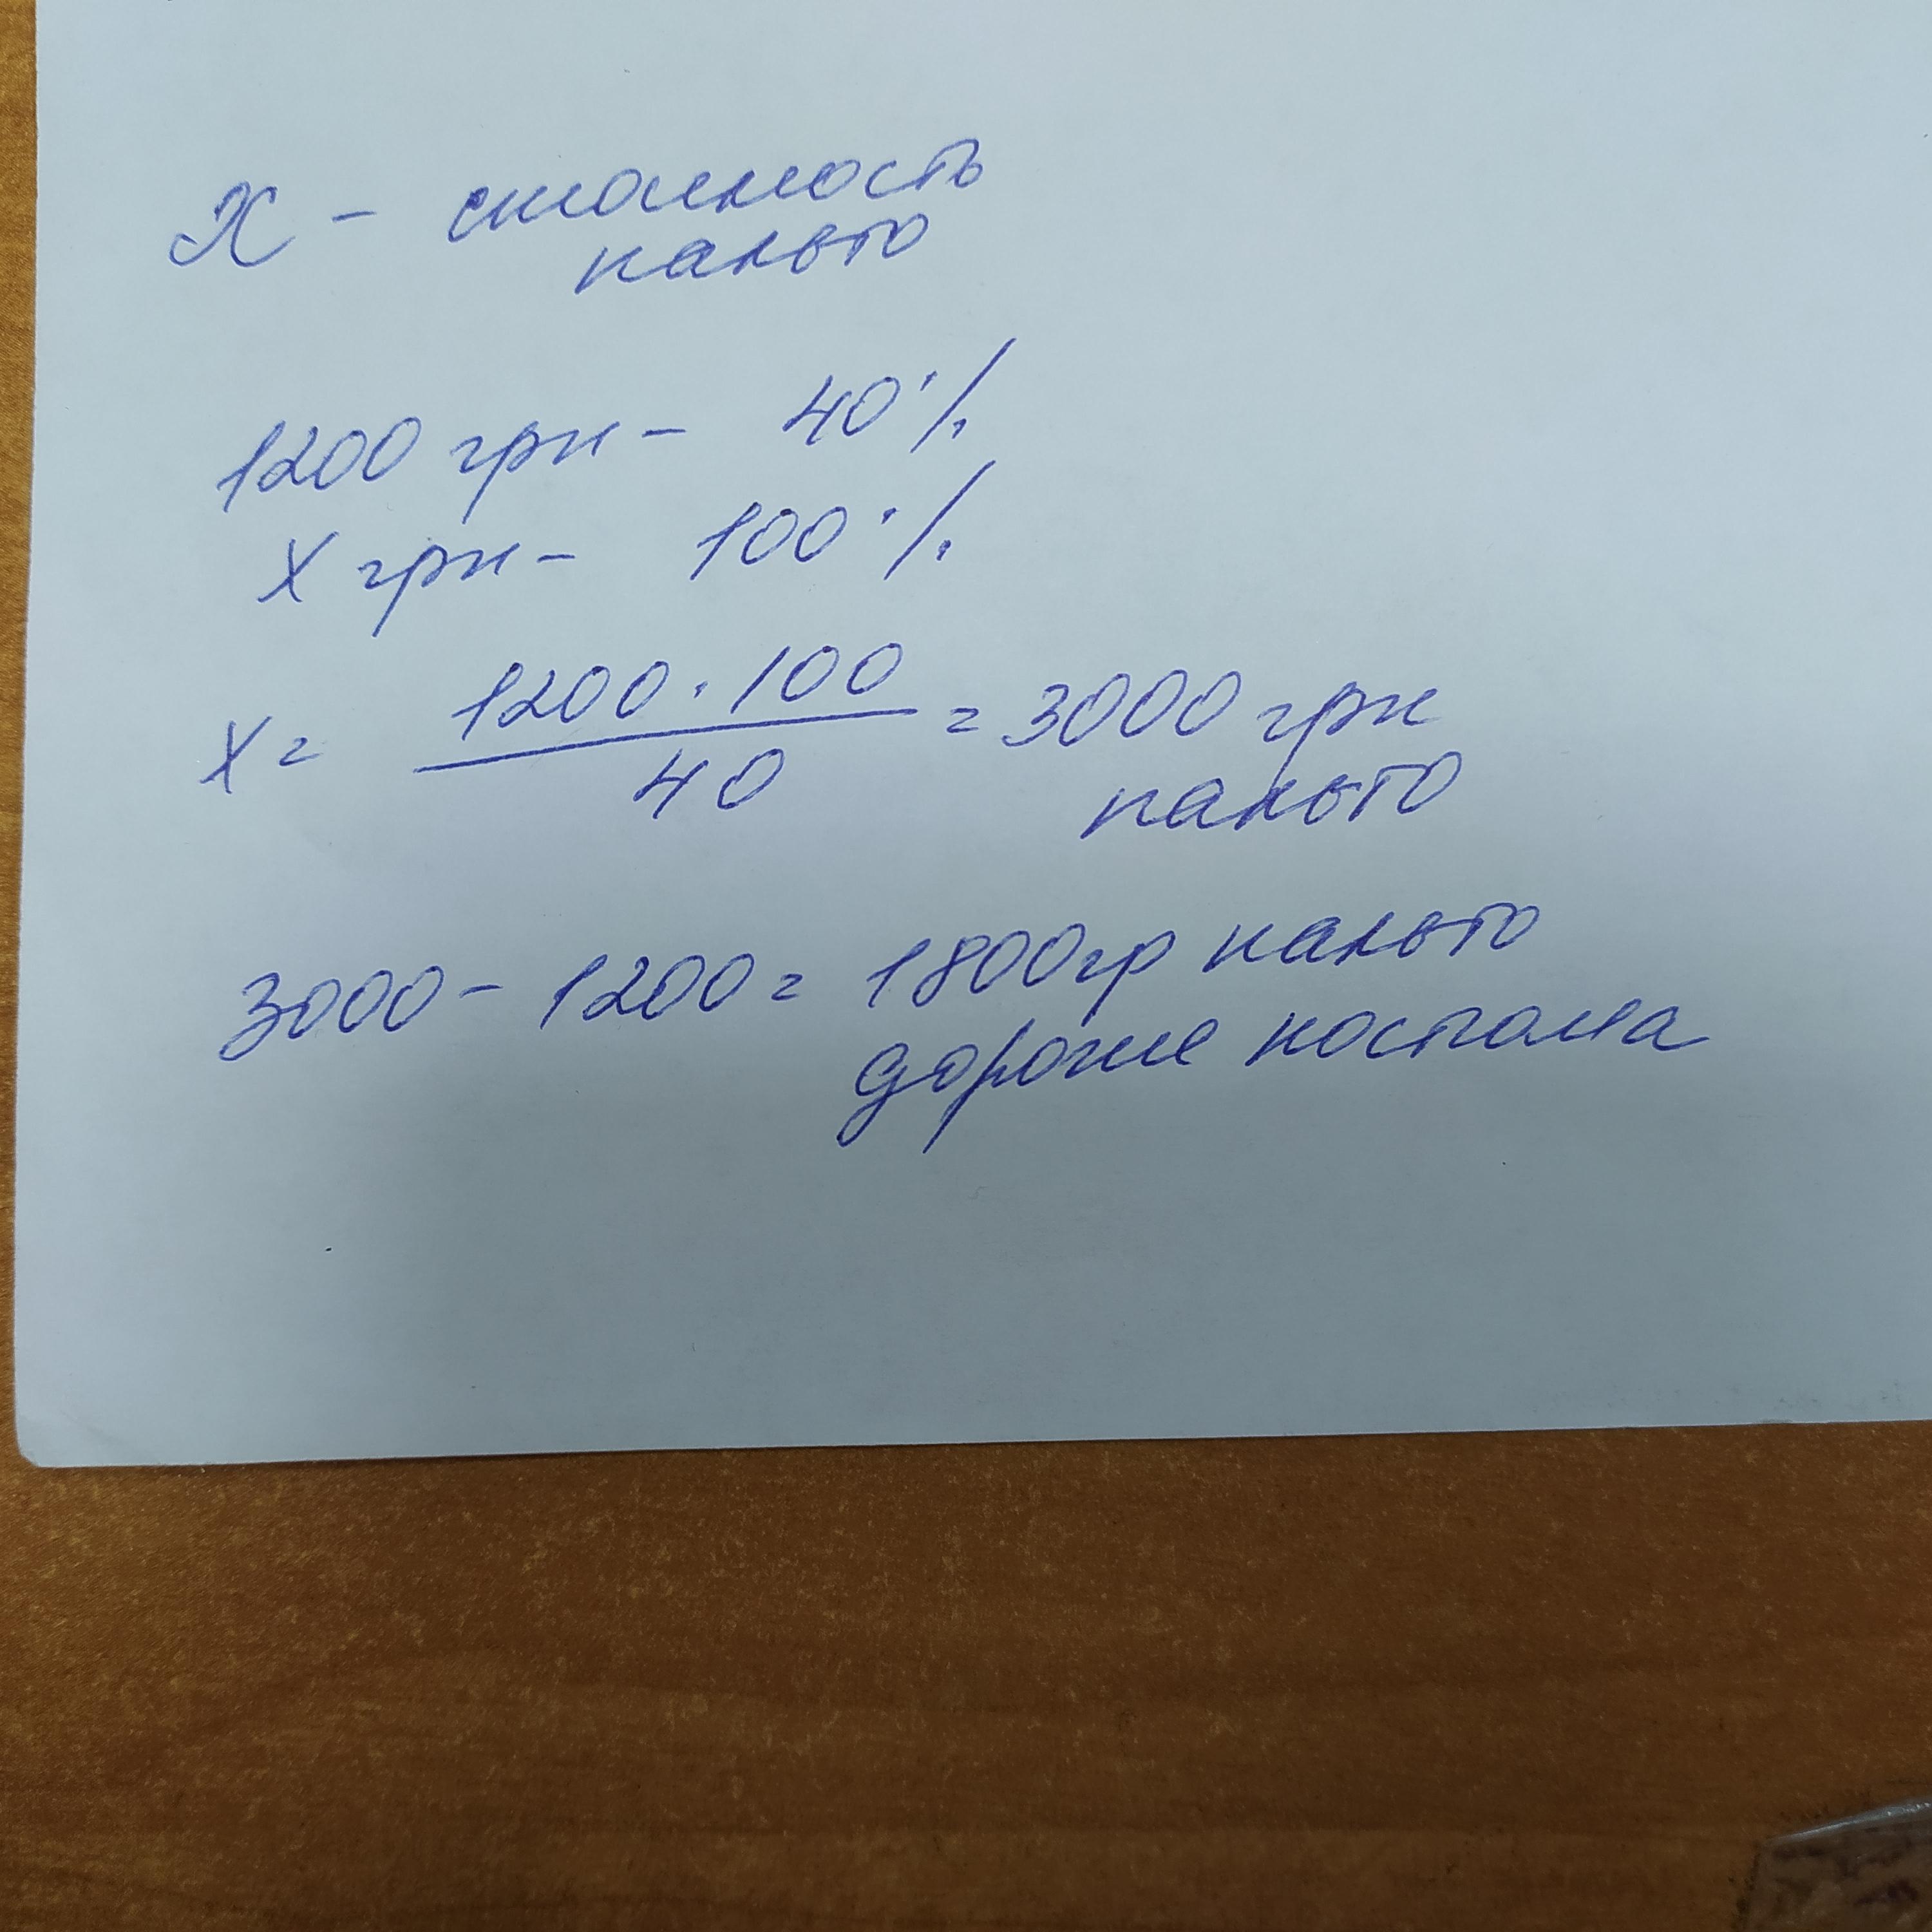 X - стоимость
пальто
1200 грн - 40%
X грн - 100%
X = 1200 · 100 / 40 = 3000 грн
пальто
3000 - 1200 = 1800 гр пальто
дороже костюма